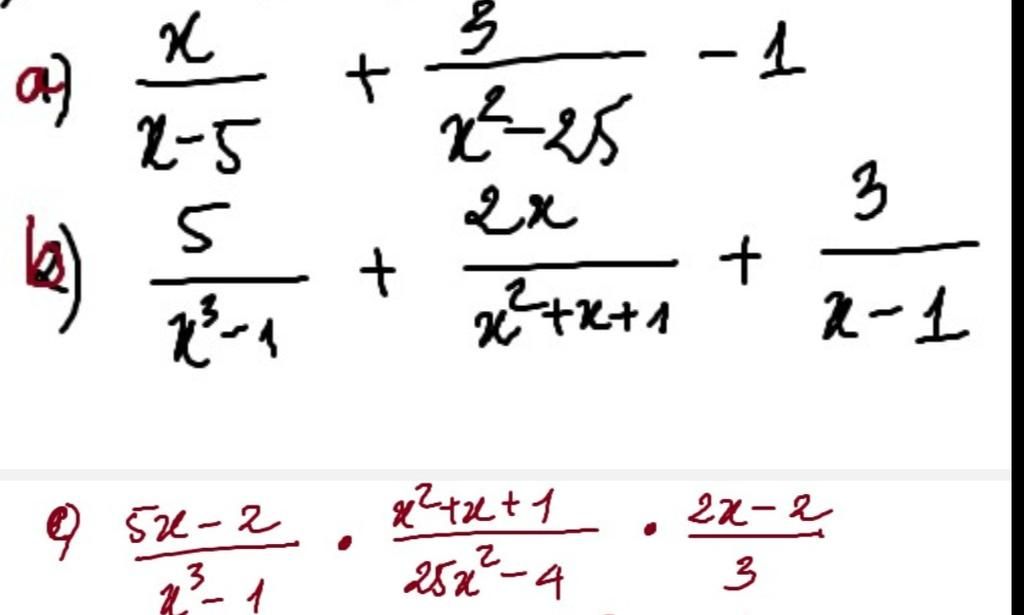 a) x/(x-5) + 3/(x²-25) - 1
b) 5/(x³-1) + 2x/(x²+x+1) + 3/(x-1)
c) (5x-2)/(x³-1) · (x²+x+1)/(25x²-4) · (2x-2)/3